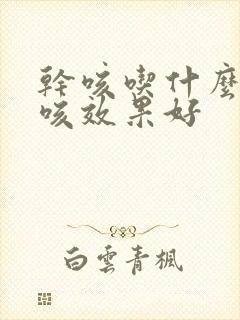 幹咳喫什麼
咳效果好
白雲青楓